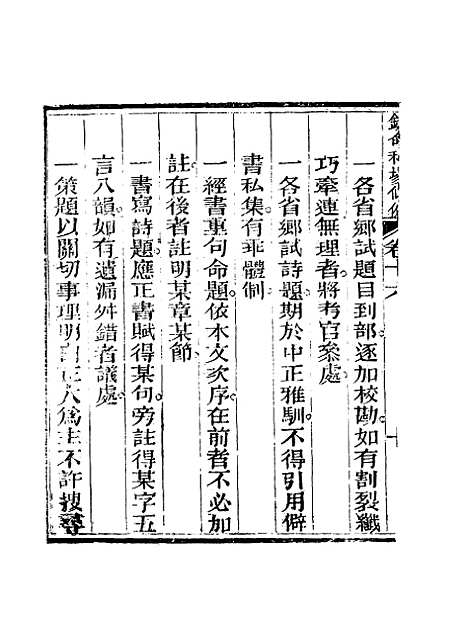 欽定科場條例 卷十六 十
一各省鄉試題目到部逐加校勘如有割裂纖
巧牽連無理者將考官叅處
一各省鄉試詩題期於中正雅馴不得引用僻
書私集有乖體制
一經書重句命題依本文次序在前者不必加
註在後者註明某章某節
一書寫詩題應正書賦得某句旁註得某字五
言八韻如有遺漏舛錯者議處
一策題以關切事理明白正大為主不許搜尋